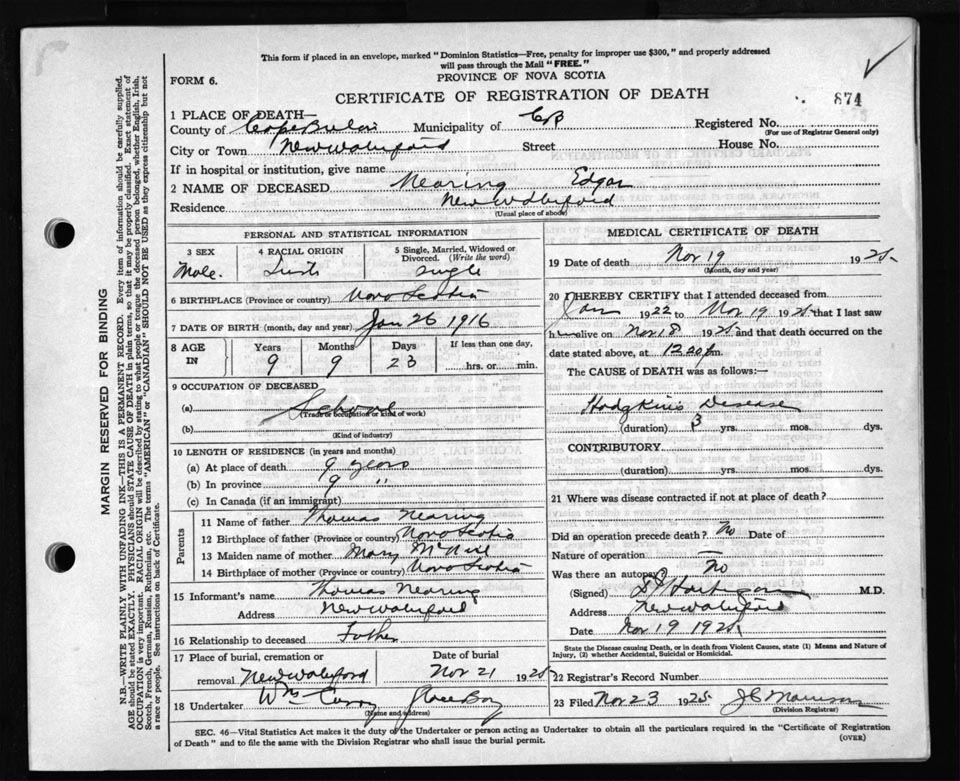 This form if placed in an envelope, marked "Dominion Statistics—Free, penalty for improper use $300," and properly addressed
will pass through the Mail "FREE."
FORM 6.
PROVINCE OF NOVA SCOTIA
CERTIFICATE OF REGISTRATION OF DEATH
874
1 PLACE OF DEATH—
County of Cape Breton Municipality of CB Registered No.
(For use of Registrar General only)
City or Town New Waterford Street House No.
If in hospital or institution, give name
2 NAME OF DECEASED Nearing Edgar
Residence New Waterford
(Usual place of abode)
PERSONAL AND STATISTICAL INFORMATION
3 SEX 4 RACIAL ORIGIN 5 Single, Married, Widowed or Divorced. (Write the word)
Male. Irish Single
6 BIRTHPLACE (Province or country) Nova Scotia
7 DATE OF BIRTH (month, day and year) Jan 26 1916
8 AGE IN Years Months Days If less than one day,
9 9 23 hrs. or min.
9 OCCUPATION OF DECEASED
(a) School
(Trade or occupation or kind of work)
(b)
(Kind of industry)
10 LENGTH OF RESIDENCE (in years and months)
(a) At place of death 9 years
(b) In province 9 "
(c) In Canada (if an immigrant)
Parents
11 Name of father Thomas Nearing
12 Birthplace of father (Province or country) Nova Scotia
13 Maiden name of mother Mary McNeil
14 Birthplace of mother (Province or country) Nova Scotia
15 Informant's name Thomas Nearing
Address New Waterford
16 Relationship to deceased Father
17 Place of burial, cremation or removal New Waterford Date of burial Nov 21 1925
18 Undertaker Wm Curry Glace Bay
(Name and address)
MEDICAL CERTIFICATE OF DEATH
19 Date of death Nov 19 1925
(Month, day and year)
20 I HEREBY CERTIFY that I attended deceased from
Jan 1922 to Nov 19 1925 that I last saw
h alive on Nov 18 1925 and that death occurred on
date stated above, at m.
The CAUSE of DEATH was as follows:—
Hodgkins Disease
(duration) 3 yrs. mos. dys.
CONTRIBUTORY
(duration) yrs. mos. dys.
21 Where was disease contracted if not at place of death?
Did an operation precede death? No Date of
Nature of operation —
Was there an autopsy? No
(Signed) M.D.
Address New Waterford
Date Nov 19 1925
State the Disease causing Death, or in death from Violent Causes, state (1) Means and Nature of
Injury, (2) whether Accidental, Suicidal or Homicidal.
22 Registrar's Record Number
23 Filed Nov 23 1925
(Division Registrar)
SEC. 46—Vital Statistics Act makes it the duty of the Undertaker or person acting as Undertaker to obtain all the particulars required in the "Certificate of Registration
of Death" and to file the same with the Division Registrar who shall issue the burial permit.
(OVER)
MARGIN RESERVED FOR BINDING
N.B.—WRITE PLAINLY WITH UNFADING INK—THIS IS A PERMANENT RECORD. Every item of information should be carefully supplied.
AGE should be stated EXACTLY. PHYSICIANS should STATE CAUSE OF DEATH in plain terms, so that it may be properly classified. Exact statement of
OCCUPATION is very important. RACIAL ORIGIN will be described by stating to what people or tongue the deceased person belonged, whether English, Irish,
Scotch, French, German, Russian, Ruthenian, etc. The terms "AMERICAN" or "CANADIAN" SHOULD NOT BE USED as they express citizenship but not
a race or people. See instructions on back of Certificate.